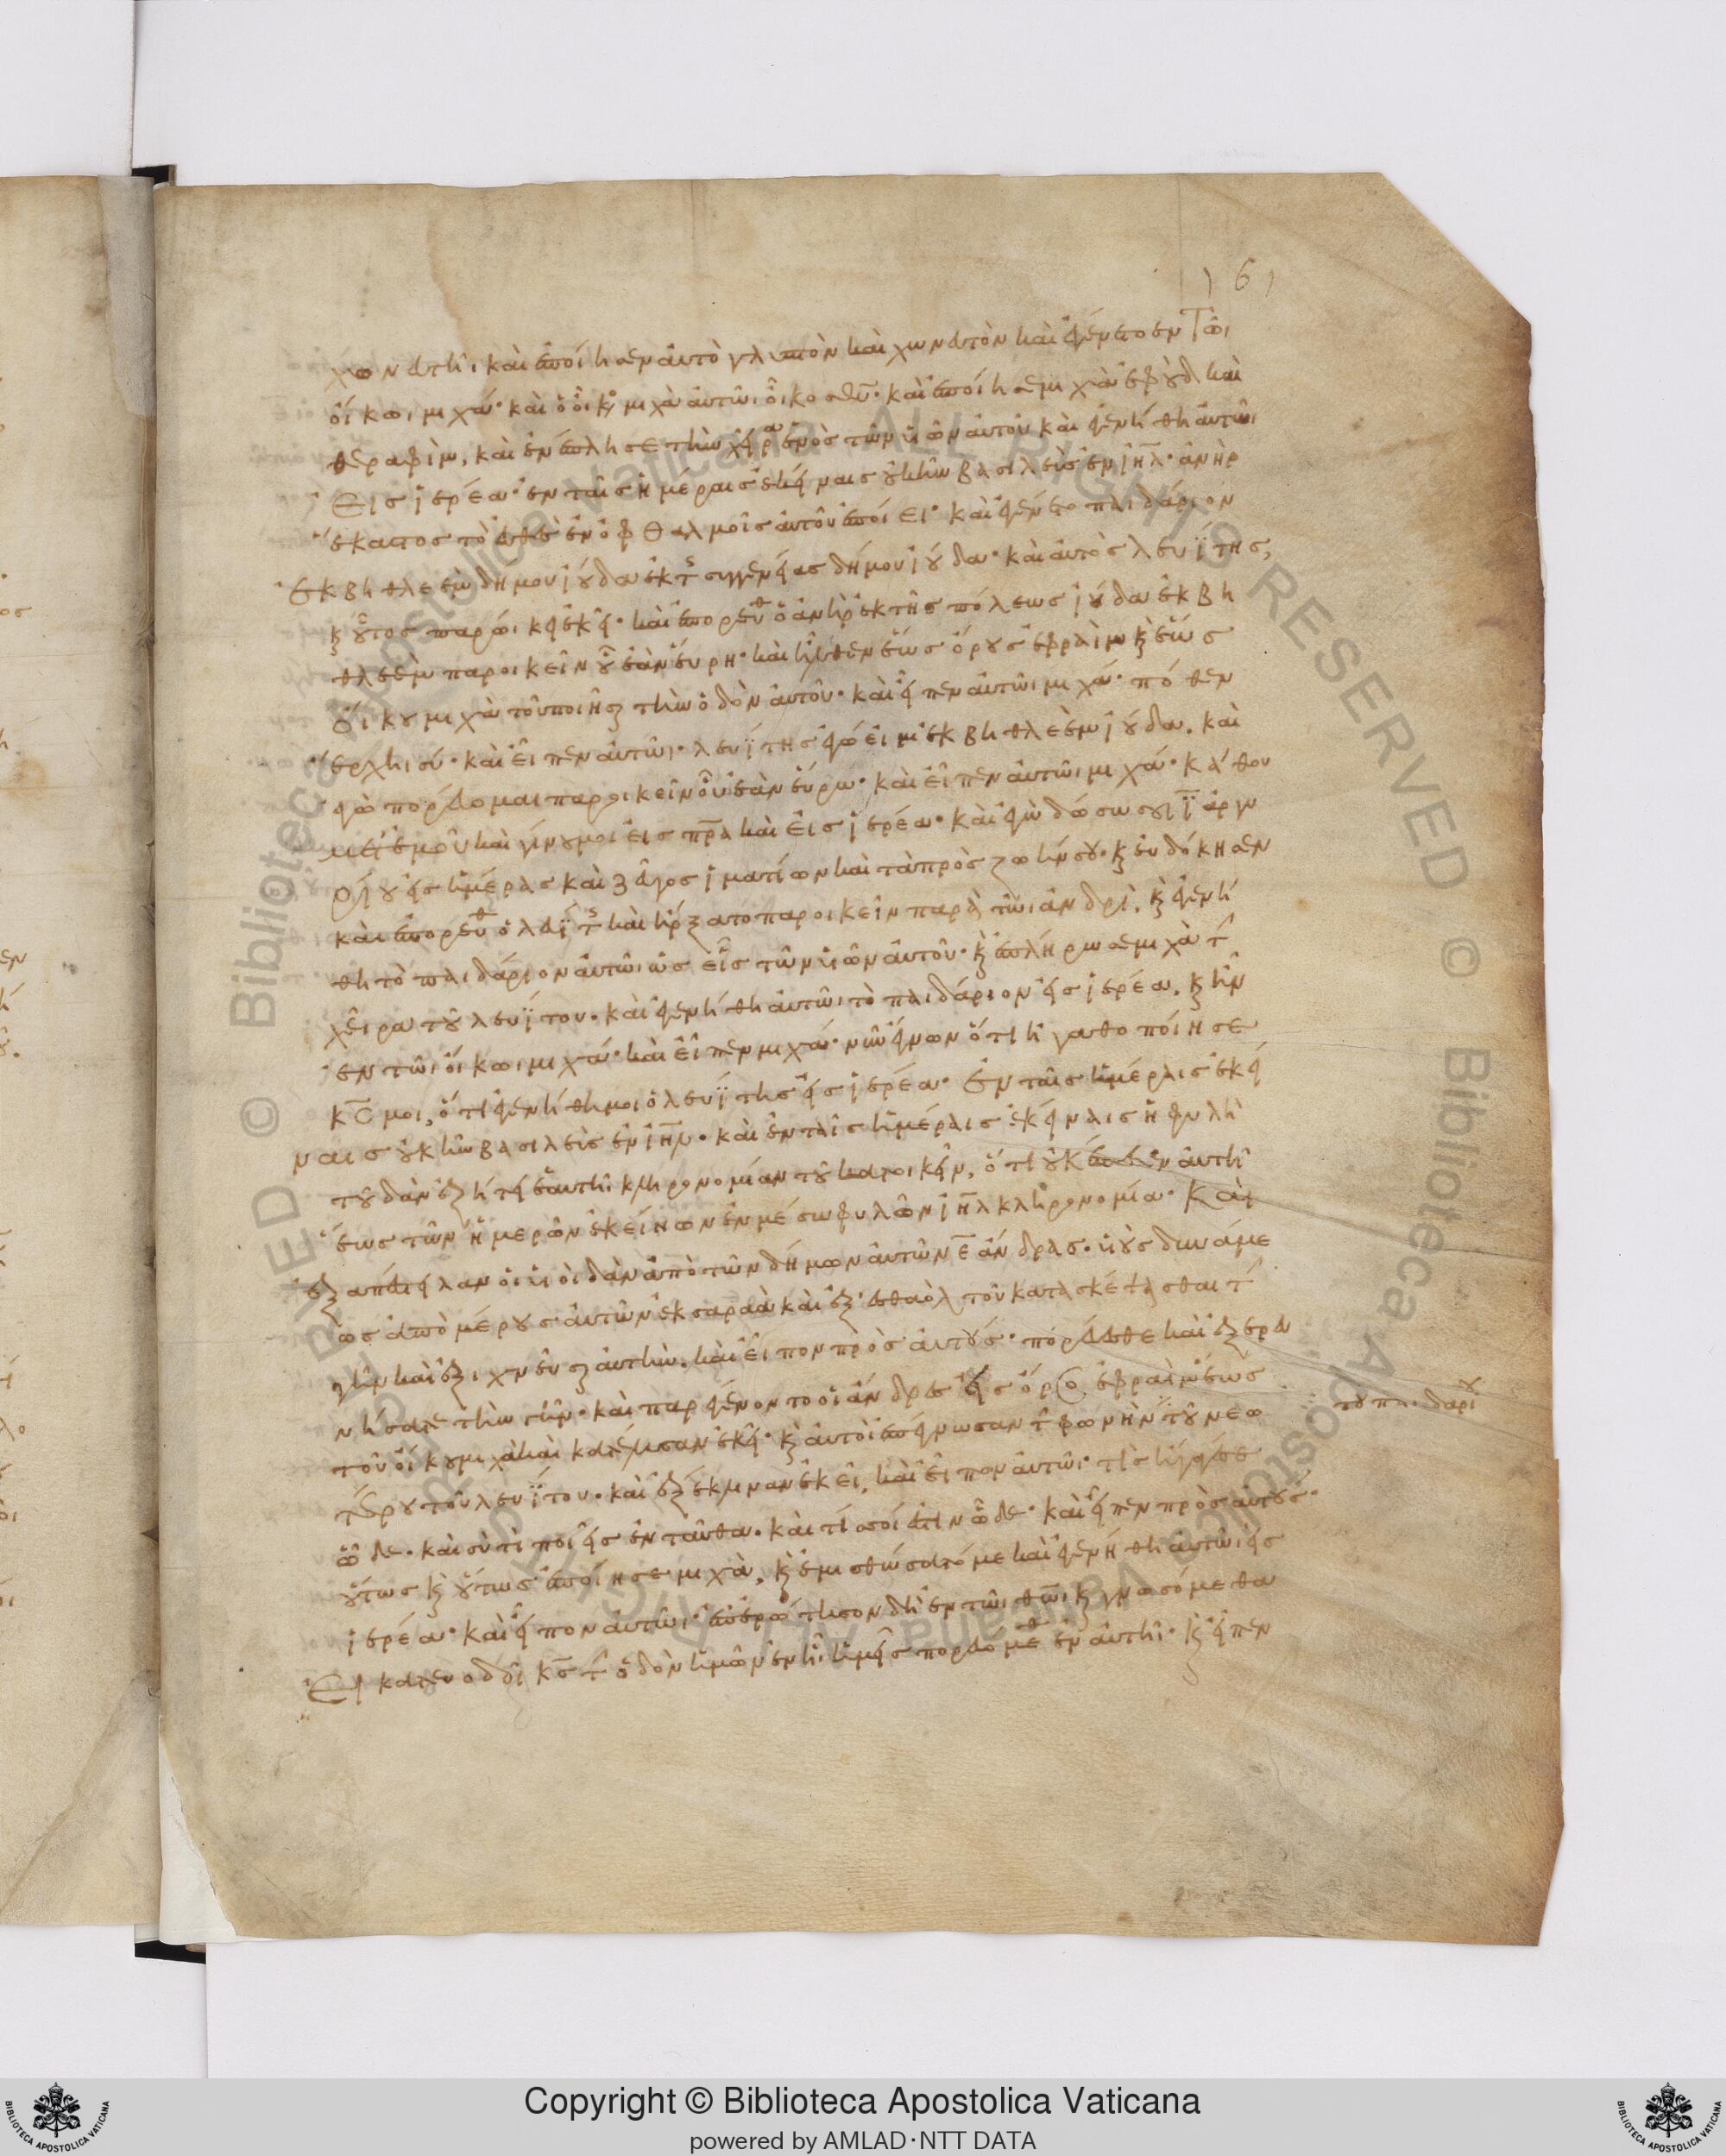 161
χωνευτῆι καὶ ἐποίησεν αὐτὸ γλυπτὸν καὶ χωνευτὸν καὶ ἐγένετο ἐν τῶι
οἴκωι μιχά· καὶ ὁ οἶκ μιχὰ αὐτῶι οἶκο θυ· καὶ ἐποίησε μιχὰ ἐφοὺδ καὶ
θεραφὶμ, καὶ ἐνέπλησε τὴν χεῖρα ἑνὸς τῶν υἱῶν αὐτοῦ καὶ ἐγενήθη αὐτῶι
εἰς ἱερέα· ἐν ταῖς ἡμέραις ἐκείναις οὐκ ἦν βασιλεὺς ἐν ιηλ· ἀνὴρ
ἕκαστος τὸ εὐθὲς ἐν ὀφθαλμοῖς αὐτοῦ ἐποίει· καὶ ἐγένετο παιδάριον
ἐκ βηθλεὲμ δήμου ἰούδα ἐκ τῆς συγγενείας δήμου ἰούδα· καὶ αὐτὸς λευΐτης,
κ οὗτος παρώικει ἐκεῖ· καὶ ἐπορεύθ ὁ ἀνὴρ ἐκ τῆς πόλεως ἰούδα ἐκ βη
θλεὲμ παροικεῖν οὗ ἐὰν εὕρη· καὶ ἦλθεν ἕως ὄρους ἐφραὶμ κ ἕως
οἴκου μιχὰ τοῦ ποιῆσαι τὴν ὁδὸν αὐτοῦ· καὶ εἶπεν αὐτῶι μιχά· πόθεν
ἔρχηι σύ· καὶ εἶπεν αὐτῶι· λευΐτης ἐγώ εἰμι ἐκ βηθλεὲμ ἰούδα. καὶ
ἐγὼ πορεύομαι παροικεῖν οὗ ἐὰν εὕρω· καὶ εἶπεν αὐτῶι μιχά· κάθου
μετ ἐμοῦ καὶ γίνου μοι εἰς πρα καὶ εἰς ἱερέα· καὶ ἐγὼ δώσω σοι ι ἀργυ
ρίου εἰς ἡμέρας καὶ ζεῦγος ἱματίων καὶ τὰ πρὸς ζωήν σου· κ εὐδόκησεν
καὶ ἐπορεύθ ὁ λευΐτης καὶ ἤρξατο παροικεῖν παρὰ τῶι ἀνδρὶ. κ ἐγενή
θη τὸ παιδάριον αὐτῶι ὡς εἷς τῶν υἱῶν αὐτοῦ· κ ἐπλήρωσε μιχὰ τ
χεῖρα τοῦ λευΐτου· καὶ ἐγενήθη αὐτῶι τὸ παιδάριον εἰς ἱερέα. κ ἦν
ἐν τῶι οἴκωι μιχά· καὶ εἶπεν μιχά· νῦν ἔγνων ὅτι ἠγαθοποίησε
κς μοι, ὅτι ἐγενήθη μοι ὁ λευΐτης εἰς ἱερέα· ἐν ταῖς ἡμέραις ἐκεί
ναις οὐκ ἦν βασιλεὺς ἐν ιηλ· καὶ ἐν ταῖς ἡμέραις ἐκείναις ἡ φυλὴ
τοῦ δὰν ἐζήτει ἑαυτῆι κληρονομίαν τοῦ κατοικεῖν, ὅτι οὐκ ἔπεσεν αὐτῆι
ἕως τῶν ἡμερῶν ἐκείνων ἐν μέσω φυλῶν ιηλ κληρονομία· Καὶ
ἐξαπέστειλαν οἱ υἱοὶ δὰν ἀπὸ τῶν δήμων αὐτῶν ε ἄνδρας· υἱοὺς δυνάμε
ως ἀπὸ μέρους αὐτῶν ἐκ σαραὰ καὶ ἐξ ἐσθαὸλ τοῦ κατασκέψασθαι τ
γῆν καὶ ἐξιχνεῦσαι αὐτήν. καὶ εἶπον πρὸς αὐτούς· πορεύεσθε καὶ ἐξερευ
νήσατε τὴν γῆν· καὶ παρεγένοντο οἱ ἄνδρες εἰς ὄρος ἐφραὶμ ἕως
τοῦ οἴκου μιχὰ καὶ κατέλυσαν ἐκεῖ· κ αὐτοὶ ἐπέγνωσαν τ φωνὴν τοῦ νεω
τέρου τοῦ λευΐτου· καὶ ἐξέκλιναν ἐκεῖ, καὶ εἶπον αὐτῶι· τίς ἤγαγέ σε
ὧδε· καὶ σὺ τί ποιεῖς ἐνταῦθα· καὶ τί σοί ἐστιν ὧδε· καὶ εἶπεν πρὸς αὐτούς·
οὕτως κ οὕτως ἐποίησε μιχὰ, κ ἐμισθώσατό με καὶ ἐγενήθη αὐτῶι εἰς
ἱερέα· καὶ εἶπον αὐτῶι· ἐπερώτησον δὴ ἐν τῶι θω κ γνωσόμεθα
εἰ κατευοδοῖ κς τ ὁδὸν ἡμῶν ἐν ἧι ἡμεῖς πορευόμεθ ἐν αὐτῆι· κ εἶπεν
τοῦ παιδαρίου